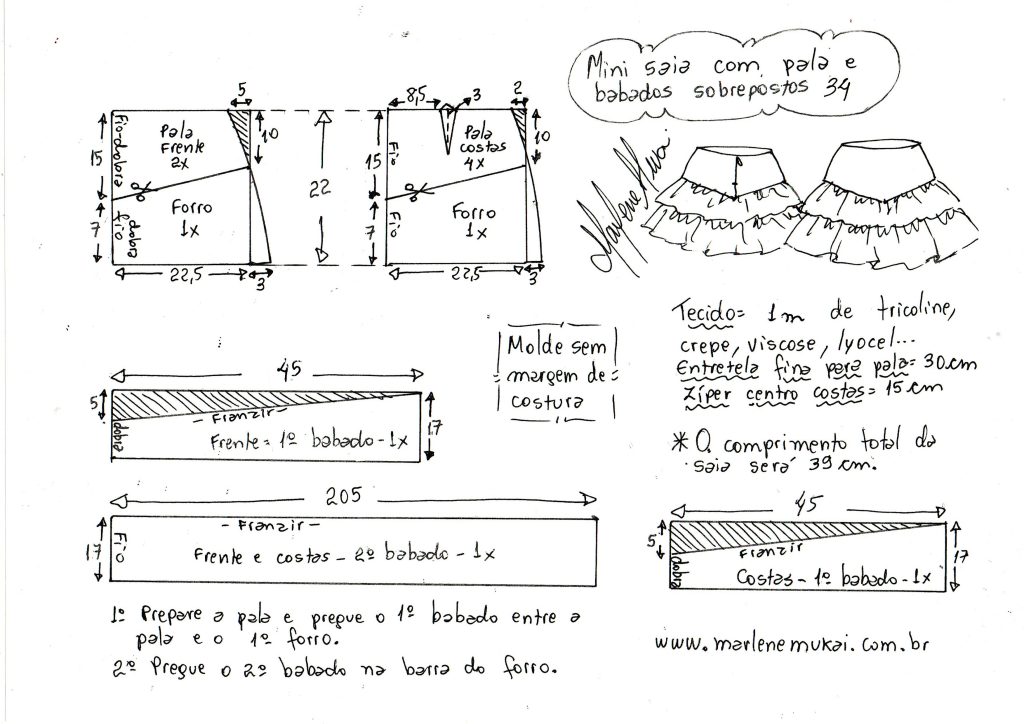 Mini saia com pala e
babados sobrepostos 34
Marlene Mukai
5
10
Fio-dobra
Pala
Frente
2x
15
7
fio
dobra
Forro
1x
22,5
3
22
8,5
3
2
10
Fio
Pala
costas
4x
15
7
Fio
Forro
1x
22,5
3
Tecido= 1m de tricoline,
crepe, viscose, lyocel...
Entretela fina para pala= 30cm
Zíper centro costas= 15cm
Molde sem
margem de
costura
* O comprimento total da
saia será 39cm.
45
5
dobra
- Franzir -
Frente= 1º babado-1x
17
205
17
Fio
- Franzir -
Frente e costas - 2º babado - 1x
45
5
dobra
Franzir
Costas - 1º babado - 1x
17
1º Prepare a pala e pregue o 1º babado entre a
pala e o 1º forro.
2º Pregue o 2º babado na barra do forro.
www.marlenemukai.com.br